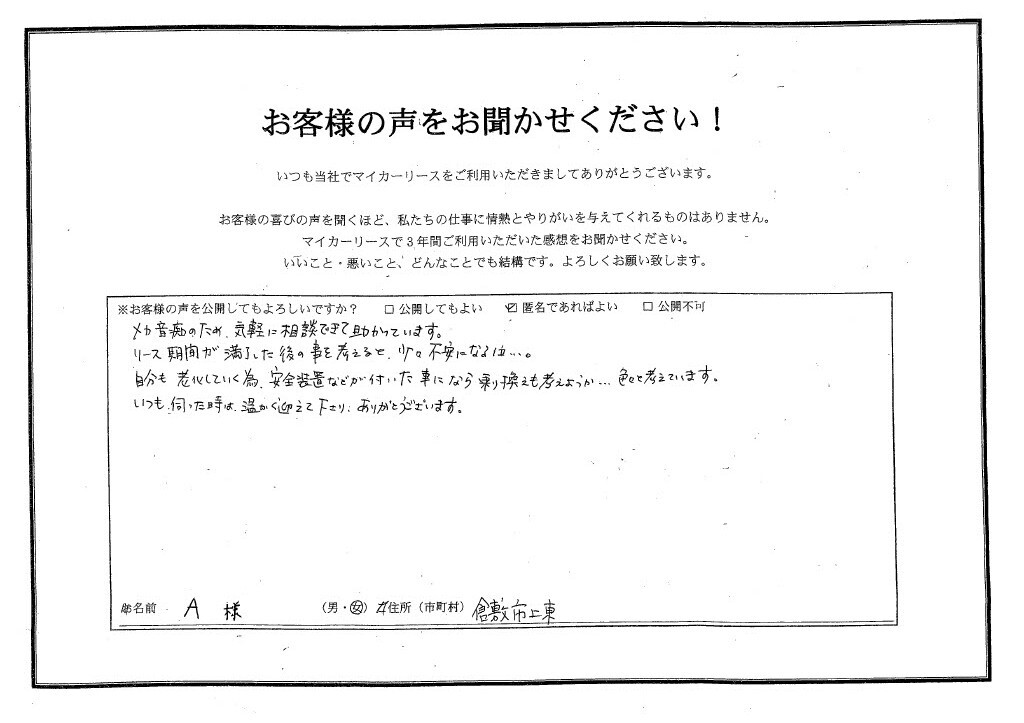 お客様の声をお聞かせください！
いつも当社でマイカーリースをご利用いただきましてありがとうございます。
お客様の喜びの声を聞くほど、私たちの仕事に情熱とやりがいを与えてくれるものはありません。
マイカーリースで３年間ご利用いただいた感想をお聞かせください。
いいこと・悪いこと、どんなことでも結構です。よろしくお願い致します。
※お客様の声を公開してもよろしいですか？ □ 公開してもよい ☑ 匿名であればよい □ 公開不可
メカ音痴のため、気軽に相談できて助かっています。
リース期間が満了した後の事を考えると、少々不安になる…。
自分も老化していく為、安全装置などが付いた車になら乗り換えも考えようか…色々と考えています。
いつも、伺った時は、温かく迎えて下さり、ありがとうございます。
お名前 A 様 （男・女） ご住所（市町村） 倉敷市上東